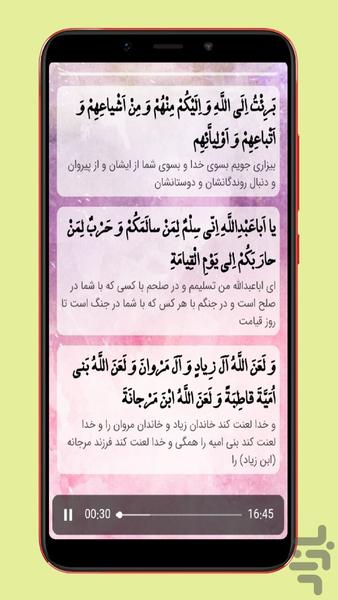 بَرِئْتُ اِلَی اللَّهِ وَ اِلَیْکُمْ مِنْهُمْ وَ مِنْ اَشْیاعِهِمْ وَ
اَتْباعِهِمْ وَ اَوْلِیاَّئِهِم
بیزاری جویم بسوی خدا و بسوی شما از ایشان و از پیروان
و دنبال روندگانشان و دوستانشان
یا اَباعَبْدِاللَّهِ اِنّی سِلْمٌ لِمَنْ سالَمَکُمْ وَ حَرْبٌ لِمَنْ
حارَبَکُمْ اِلی یَوْمِ الْقِیامَةِ
ای اباعبدالله من تسلیمم و در صلحم با کسی که با شما در
صلح است و در جنگم با هر کس که با شما در جنگ است تا
روز قیامت
وَ لَعَنَ اللَّهُ آلَ زِیادٍ وَ آلَ مَرْوانَ وَ لَعَنَ اللَّهُ بَنی
اُمَیَّةَ قاطِبَةً وَ لَعَنَ اللَّهُ ابْنَ مَرْجانَةَ
و خدا لعنت کند خاندان زیاد و خاندان مروان را و خدا
لعنت کند بنی امیه را همگی و خدا لعنت کند فرزند مرجانه
(ابن زیاد) را
00:30 16:45